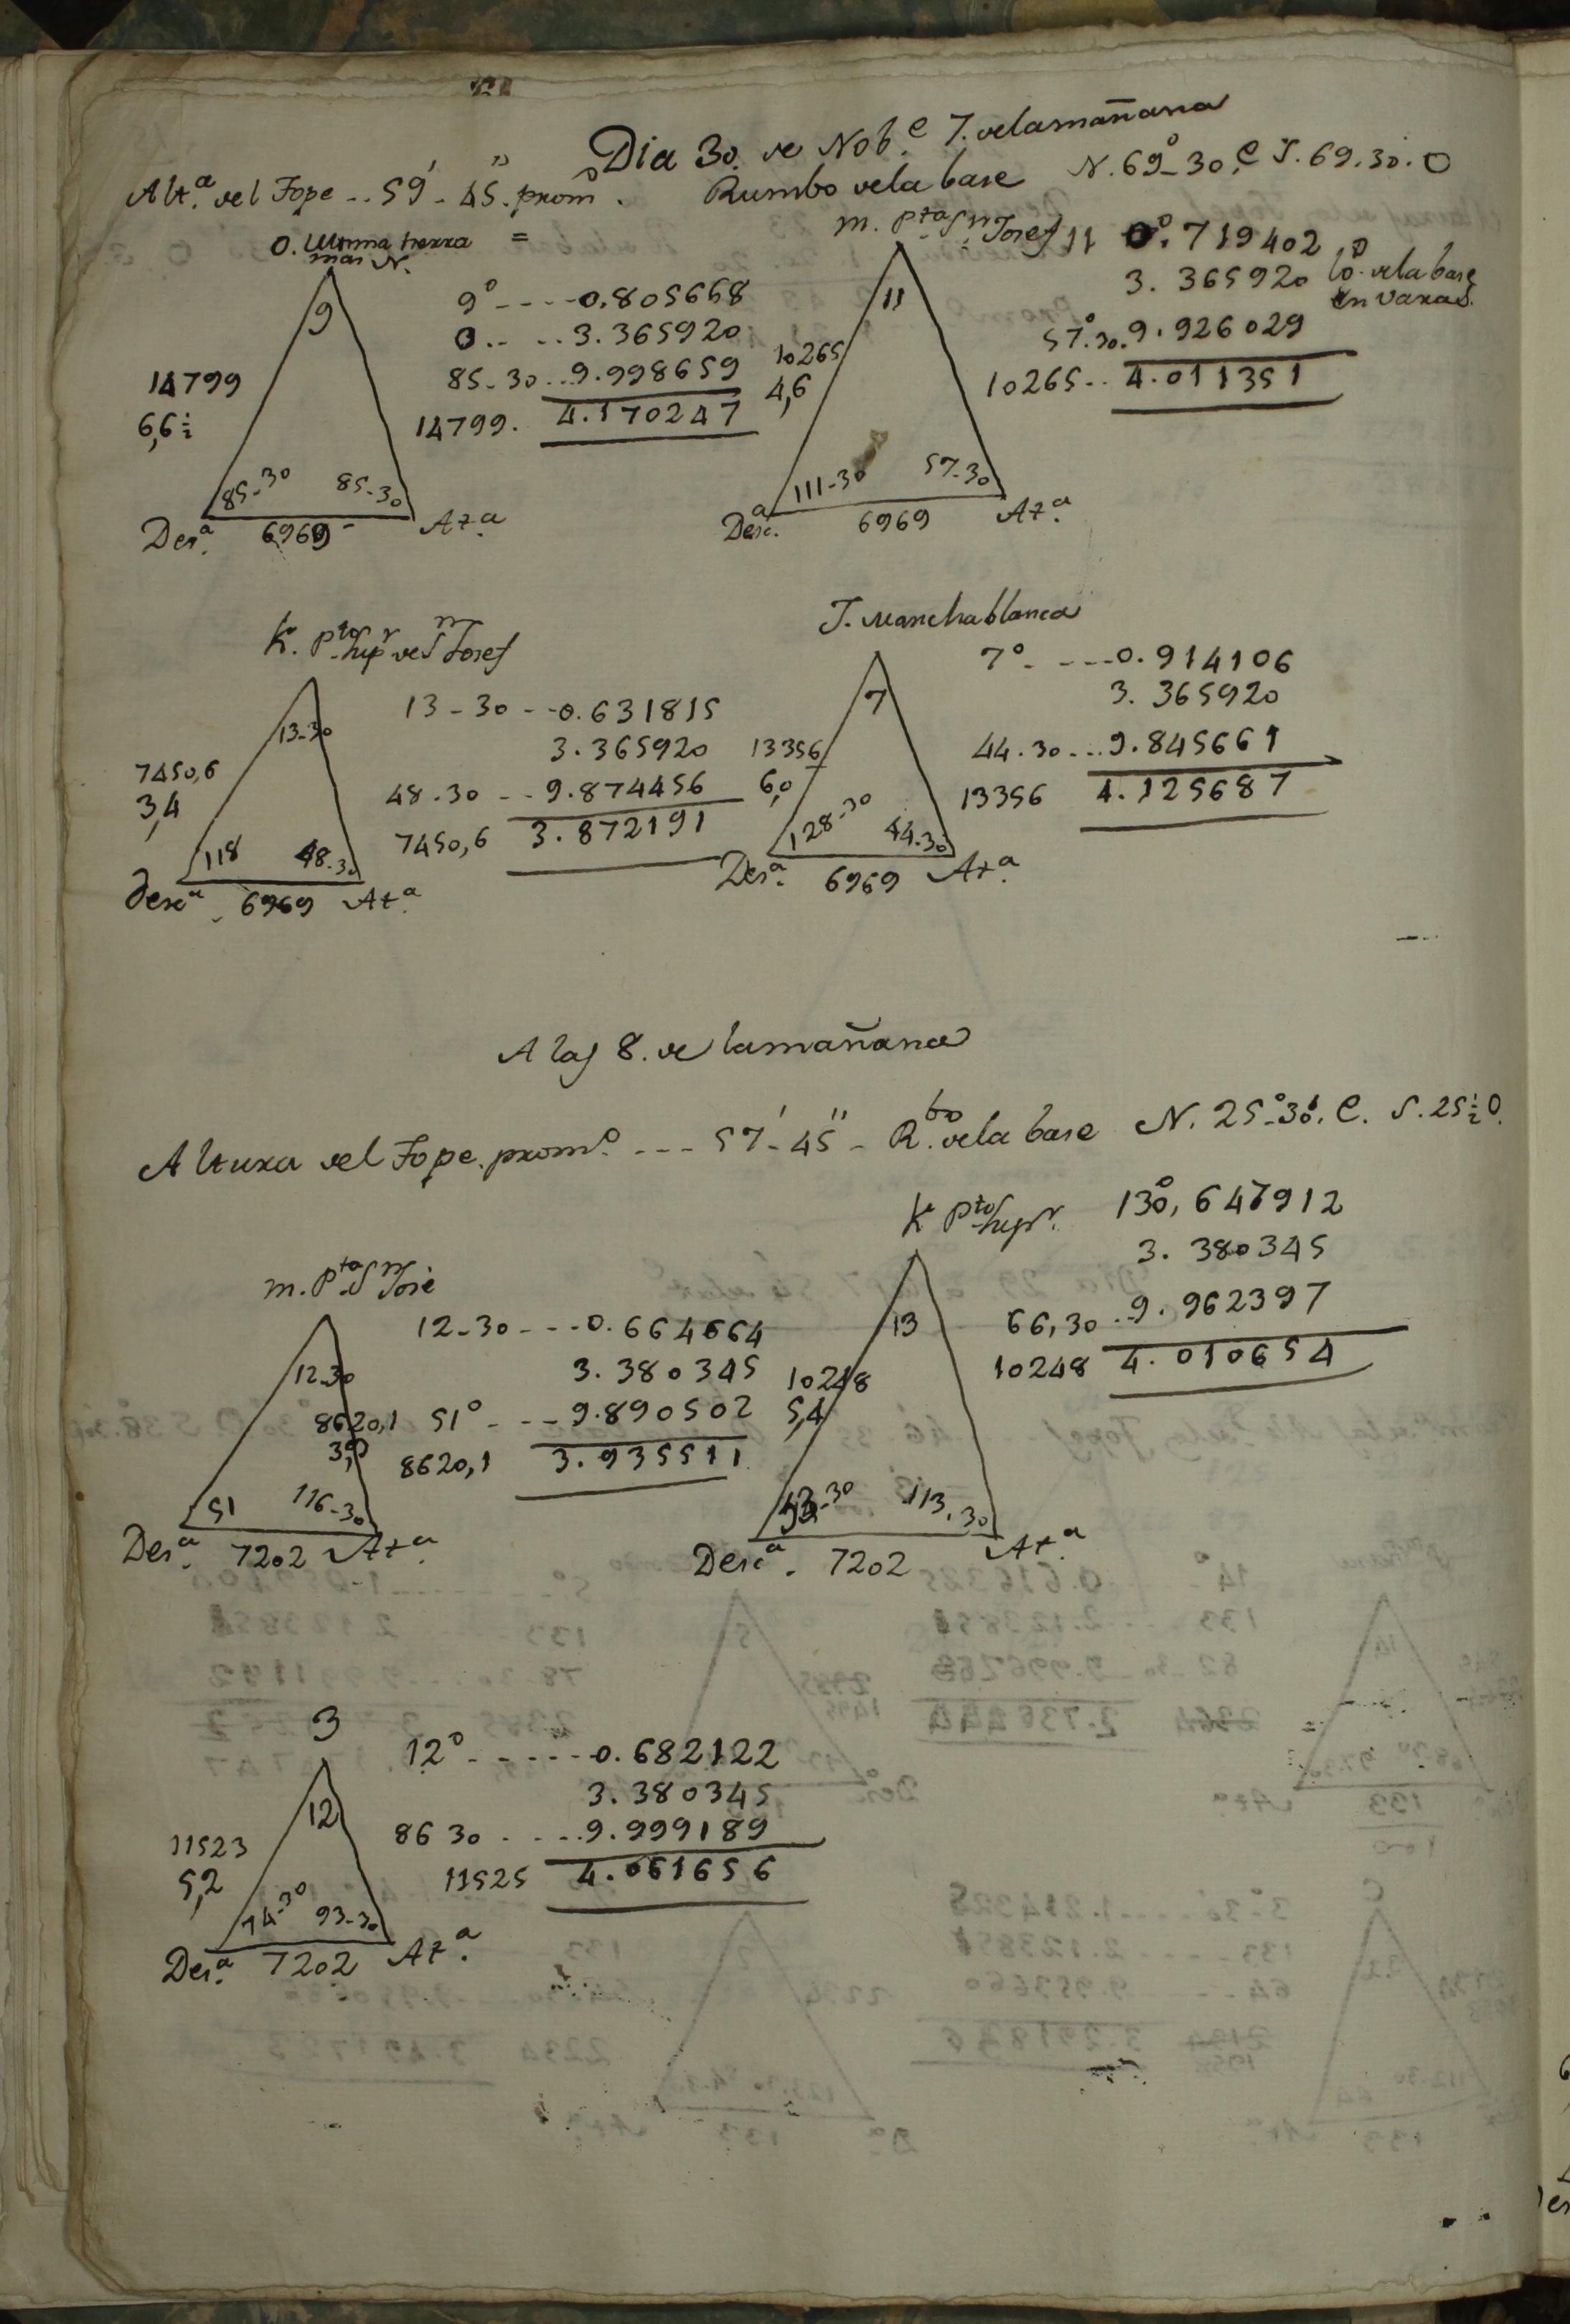 Dia 30. de Nob.e 7. de la mañana
Alt.a del Tope .. 59' - 45'' . prom.o Rumbo de la base N. 69° - 30, E S. 69. 30. O
O. Ultima tierra =
mas N.
9
9° ---- 0,805668
0.. .. 3.365920
85-30 .. 9.998659
14799. 4.170247
14799
6,6 1/2
85-30 85-30
Des.a 6969 At.a
m. Pta S.n Josef
11 0°. 719402
3. 365920 lo.o de la base
en varas.
57°.30. 9.926029
10265.. 4.011351
11
10265
4,6
111-30 57-30
Desc.a 6969 At.a
K. Pto Sup.r de S.n Josef
13-30 -- 0.631815
3.365920
48.30 -- 9.874456
7450,6 3.872191
13-30
7450,6
3,4
118 48-30
Desc.a 6969 At.a
J. Mancha blanca
7°. ---- 0.914106
3.365920
44.30 ... 9.845661
13356 4.125687
7
13356
6,0
128-30 44-30
Des.a 6969 At.a
A las 8. de la mañana
Altura del Tope. prom.o --- 57' - 45'' - R.bo de la base N. 25°-30'. E. S. 25 1/2 O.
m. Pta S.n José
12-30 --- 0.664664
3.380345
51° - --- 9.890502
8620,1 3.935511
12-30
8620,1
3,9
51 116-30
Des.a 7202 At.a
K Pto Sup.r
13°0,647912
3.380345
66,30 .. 9.962397
10248 4.010654
13
10248
5,4
53-30 113.30
Desc.a . 7202 At.a
3
12° ----- 0.682122
3.380345
86 30 .... 9.999189
11525 4.061656
12
11523
5,2
74-30 93-30
Des.a 7202 At.a